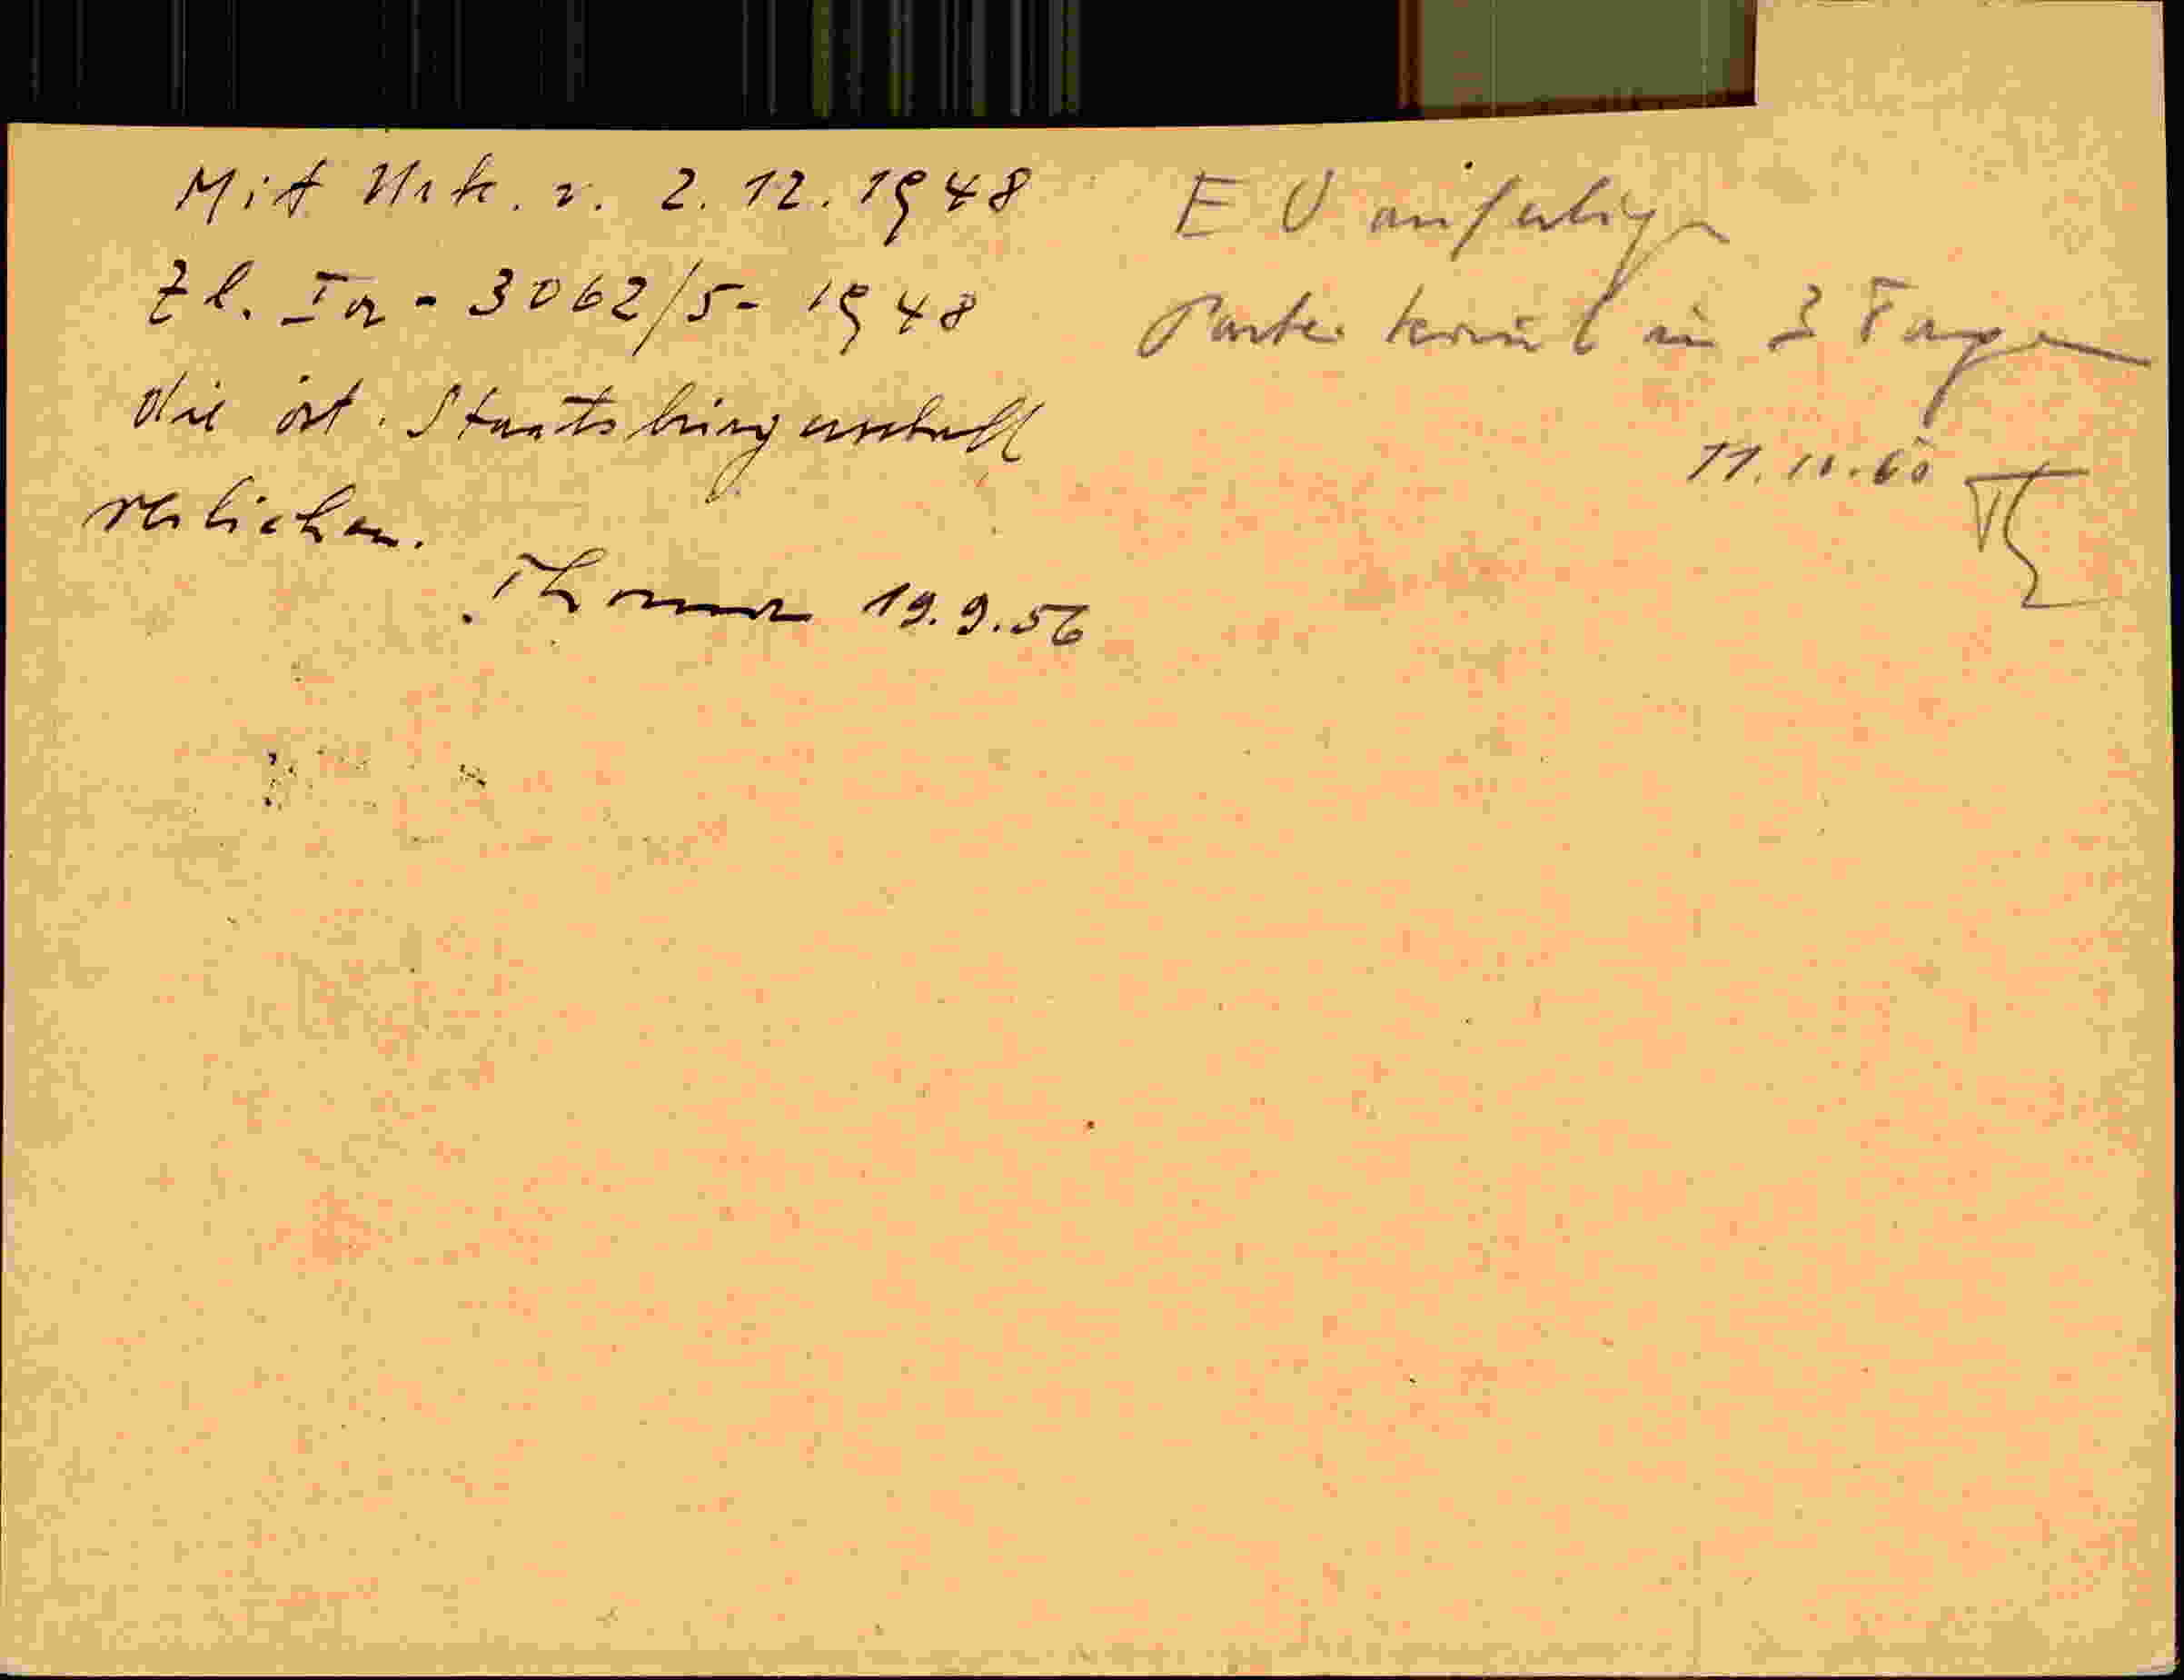 Mit Urk. v. 2.12.1948
Zl. Ia - 3062/5 - 1948
die öst. Staatsbürgerschaft
verliehen.
Thoma 19.9.56
EU anfertigen
Partei kommt in 3 Tagen
11.10.60